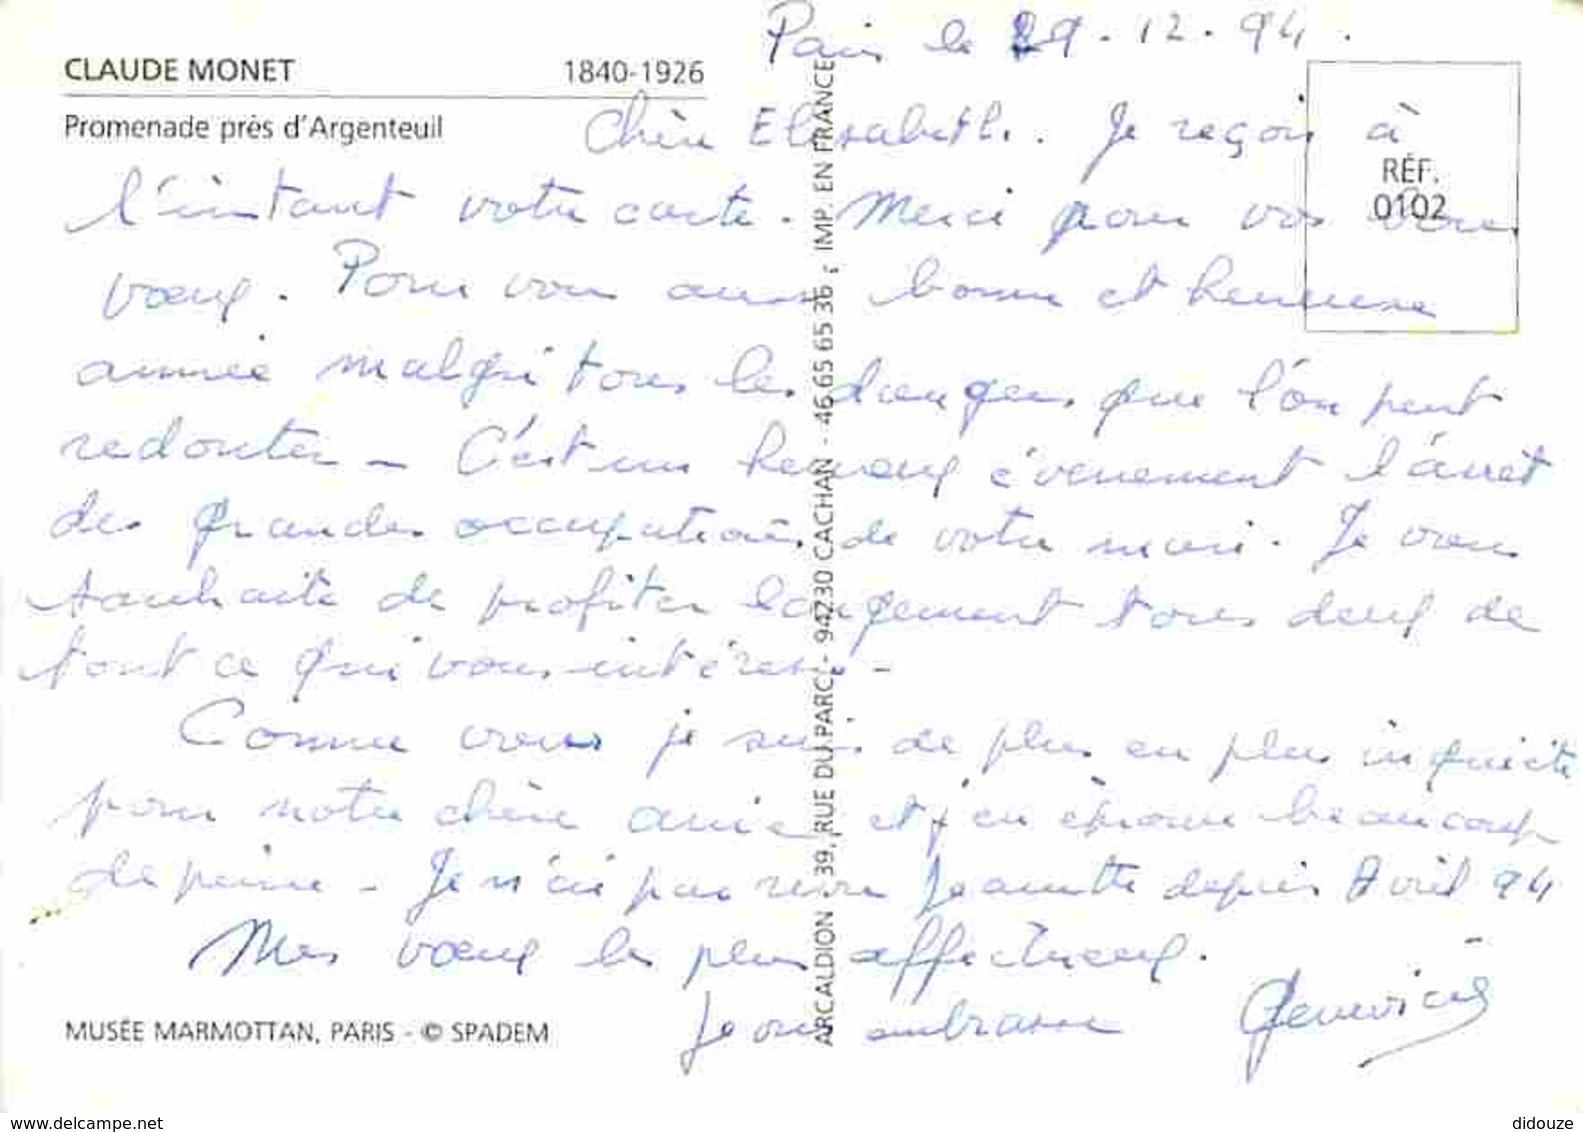 Paris le 29.12.94.
CLAUDE MONET 1840-1926
Promenade près d'Argenteuil
Chère Elisabeth. Je reçois à
l'instant votre carte. Merci pour vos bons
vœux. Pour vous aussi bonne et heureuse
année malgré tous les dangers que l'on peut
redouter - C'est un heureux évenement l'arrêt
des grandes occupations de votre mari. Je vous
souhaite de profiter longuement tous deux de
tout ce qui vous intéresse -
Comme vous je suis de plus en plus inquiète
pour notre chère amie et j'en éprouve beaucoup
de peine - Je n'ai pas revu Jeannette depuis Avril 94
Mes vœux les plus affectueux.
Je vous embrasse Geneviève
RÉF.
0102
ARCALDION - 39, RUE DU PARC - 94230 CACHAN - 46 65 65 36 - IMP. EN FRANCE
MUSÉE MARMOTTAN, PARIS - © SPADEM
www.delcampe.net
didouze